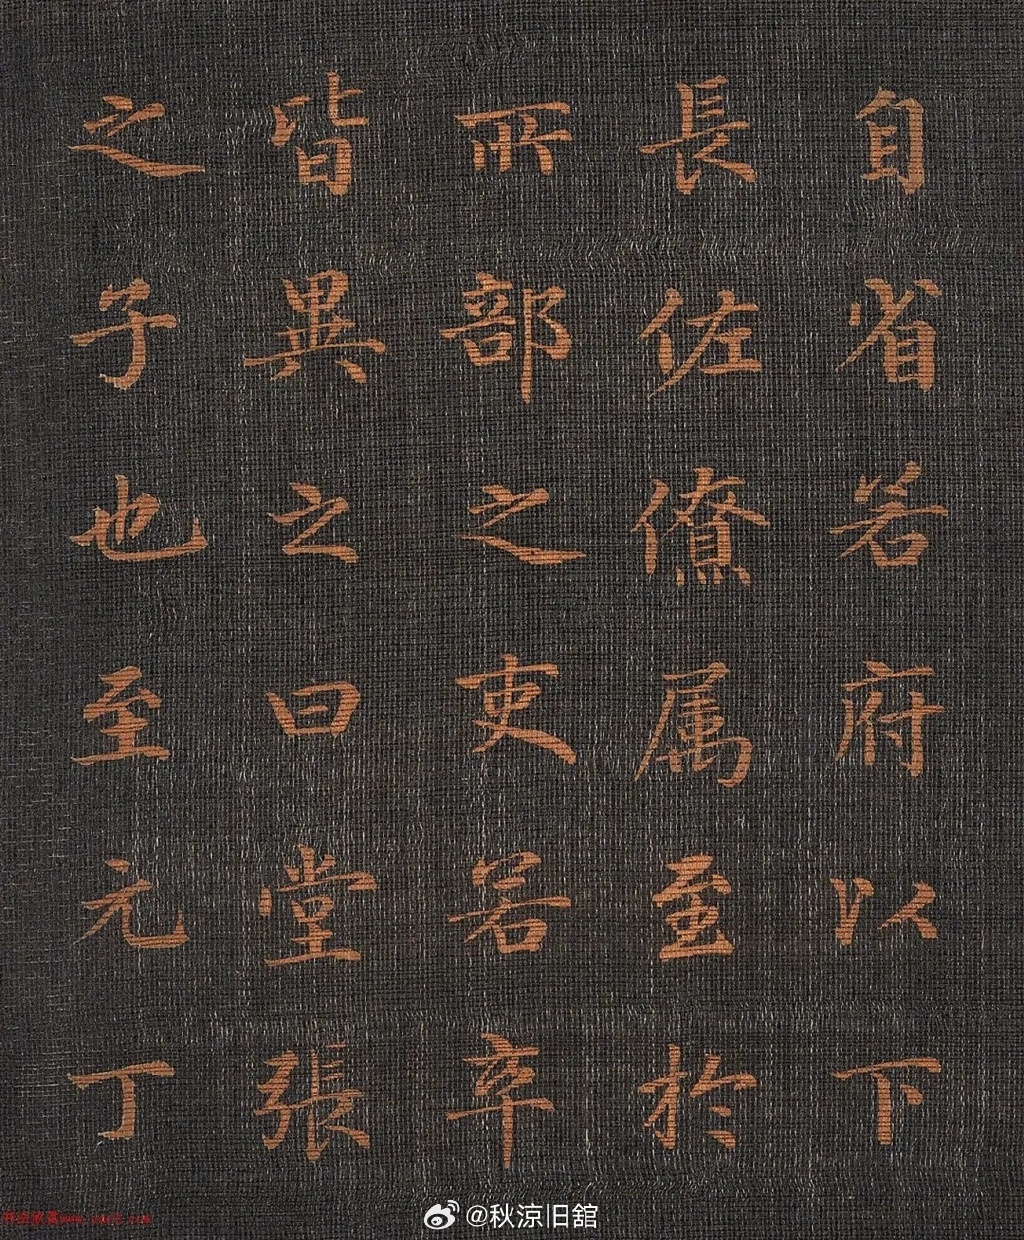 自省若府以下
長佐僚属至於
所部之吏若卒
皆異之曰堂張
之子也至元丁
@秋涼旧舘